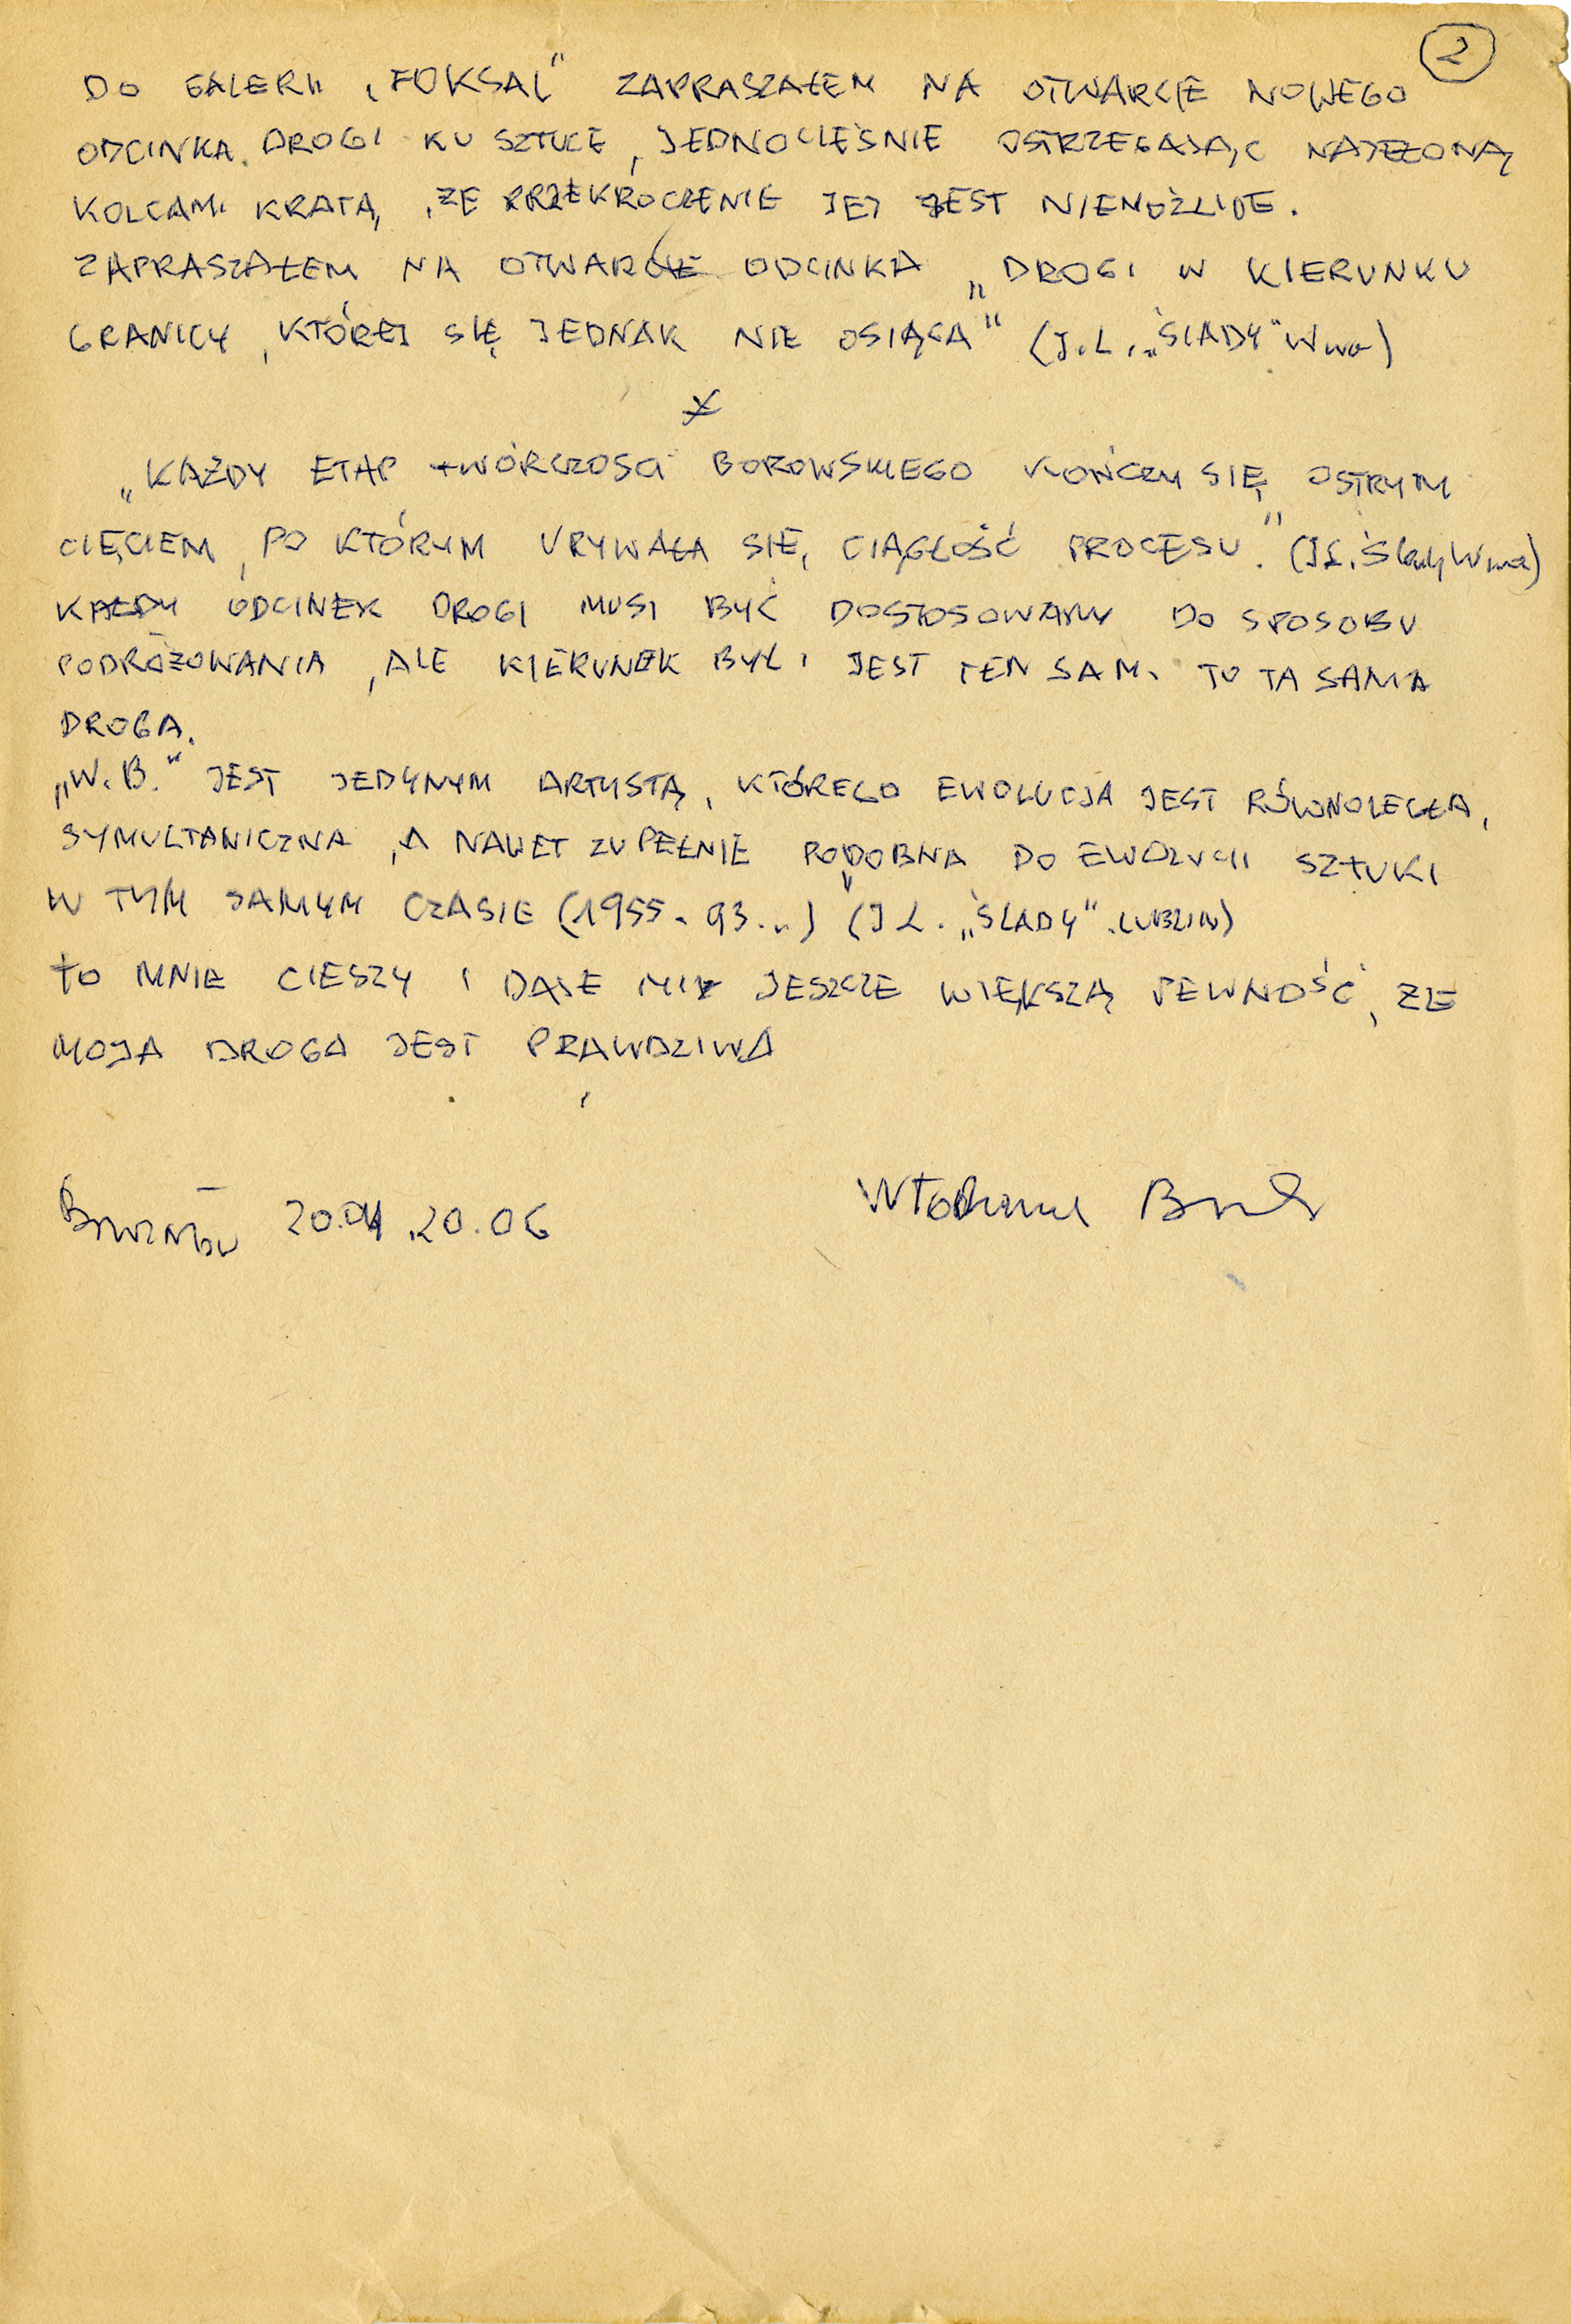 2
DO GALERII „FOKSAL" ZAPRASZAŁEM NA OTWARCIE NOWEGO
ODCINKA DROGI KU SZTUCE, JEDNOCLEŚNIE OSTRZEGAJĄC NAJEŻONĄ
KOLCAMI KRATĄ, ŻE PRZEKROCZENIE JEJ JEST NIEMOŻLIWE.
ZAPRASZAŁEM NA OTWARCIE ODCINKA „DROGI W KIERUNKU
GRANICY, KTÓREJ SIĘ JEDNAK NIE OSIĄGA" (J.L. „ŚLADY" Wwa)
„KAŻDY ETAP TWÓRCZOŚCI BOROWSKIEGO KOŃCZY SIĘ OSTRYM
CIĘCIEM, PO KTÓRYM URYWAŁA SIĘ CIĄGŁOŚĆ PROCESU." (JL. Ślady Wwa)
KAŻDY ODCINEK DROGI MUSI BYĆ DOSTOSOWANY DO SPOSOBU
PODRÓŻOWANIA, ALE KIERUNEK BYŁ I JEST TEN SAM. TO TA SAMA
DROGA.
„W.B." JEST JEDYNYM ARTYSTĄ, KTÓREGO EWOLUCJA JEST RÓWNOLEGŁA,
SYMULTANICZNA, A NAWET ZUPEŁNIE PODOBNA DO EWOLUCJI SZTUKI
W TYM SAMYM CZASIE (1955-93...)" (JL. „ŚLADY". LUBLIN)
TO MNIE CIESZY I DAJE MI JESZCZE WIĘKSZĄ PEWNOŚĆ, ŻE
MOJA DROGA JEST PRAWDZIWA
20.04.20.06 Włodzimierz B